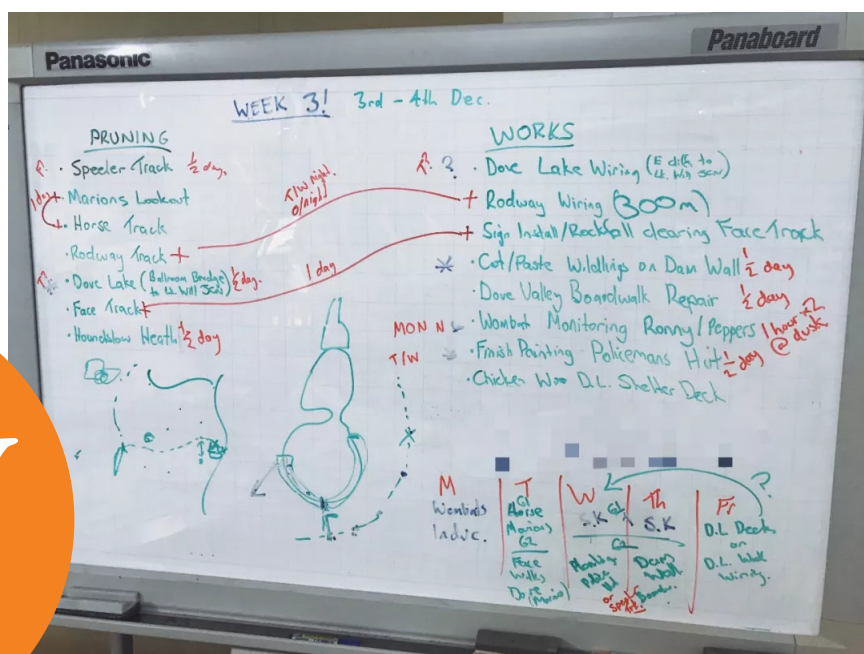 Panasonic
Panaboard
WEEK 3! 3rd - 4th Dec.
PRUNING
· Speeler Track ½ day.
1 day
· Marions Lookout
· Horse Track
· Rodway Track +
T/W night.
O/night
· Dove Lake (Ballroom Bridge) ½ day.
· Face Track +
1 day
· Hounslow Heath ½ day
WORKS
? · Dove Lake Wiring
+ Rodway Wiring (300m)
+ Sign Install/Rockfall clearing Face Track
· Cut/Paste Wildlings on Dam Wall ½ day
· Dove Valley Boardwalk Repair ½ day
MON N · Wombat Monitoring Ronny/Peppers 1 hour x2 @ dusk
T/W · Finish Painting Policemans Hut ½ day
· Chicken Wire D.L. Shelter Deck
M T W Th Fr ?
Wombats
Induc.
G1
Horse
Marions
G2
Face
Walks
Dove
S.K
G2
S.K
Dam
Wall
or
D.L Deck
or
D.L. Walk
wiring.